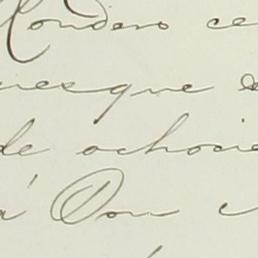 Rondero ce
nes que e
de ochocie
a Don c